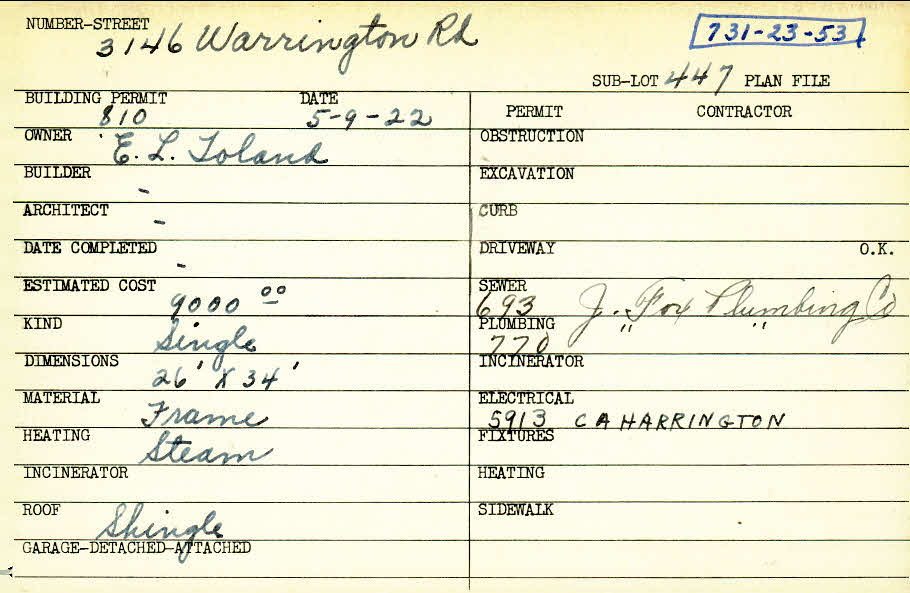 NUMBER-STREET
3146 Warrington Rd
731-23-53
SUB-LOT 447 PLAN FILE
BUILDING PERMIT DATE
810 5-9-22
OWNER E. L. Toland
BUILDER -
ARCHITECT -
DATE COMPLETED -
ESTIMATED COST 9000 00
KIND Single
DIMENSIONS 26' X 34'
MATERIAL Frame
HEATING Steam
INCINERATOR
ROOF Shingle
GARAGE-DETACHED-ATTACHED
PERMIT CONTRACTOR
OBSTRUCTION
EXCAVATION
CURB
DRIVEWAY O.K.
SEWER
693 J. Fox Plumbing Co
PLUMBING
770 " "
INCINERATOR
ELECTRICAL
5913 C A HARRINGTON
FIXTURES
HEATING
SIDEWALK